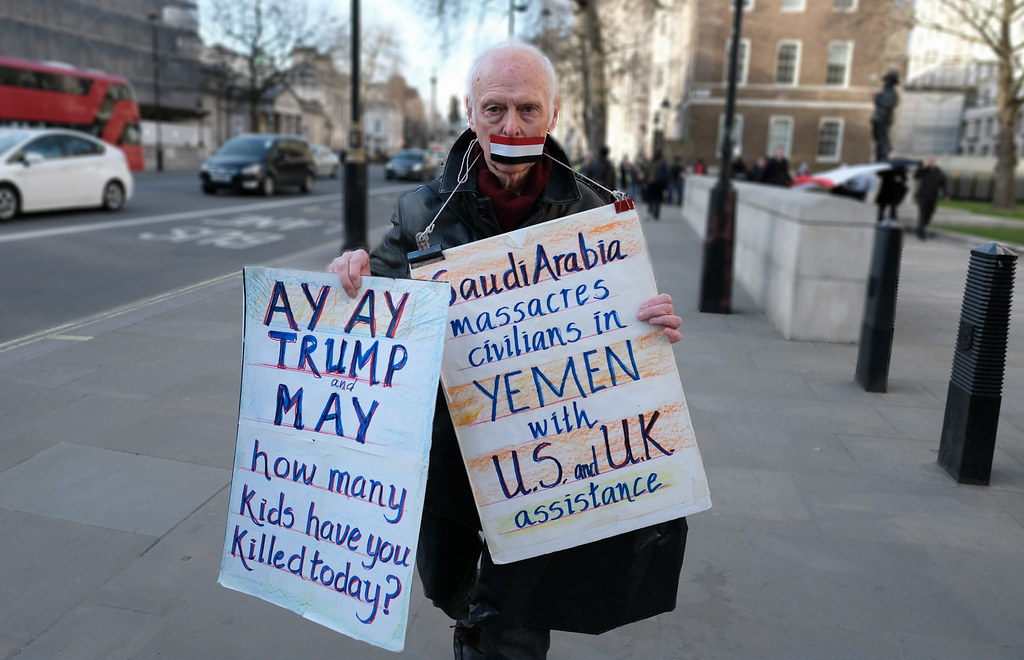 AY AY
TRUMP
and
MAY
how many
Kids have you
Killed today?
Saudi Arabia
massacres
civilians in
YEMEN
with
U.S. and U.K.
assistance